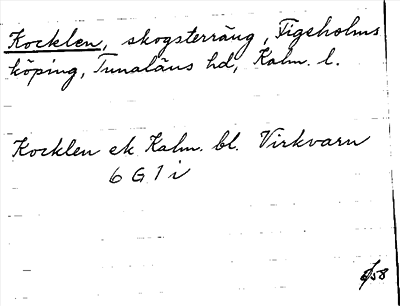 Kocklen, skogsterräng, Figeholms
köping, Tunaläns hd, Kalm. l.
Kocklen ek Kalm. bl. Virkvarn
6 G 1 i
/58